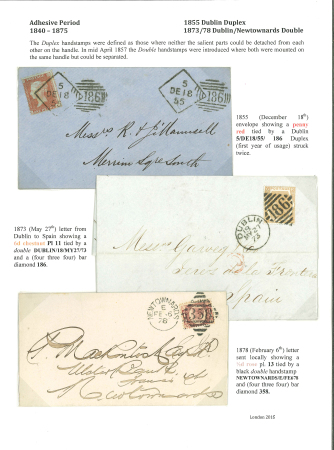 Adhesive Period
1840 - 1875
1855 Dublin Duplex
1873/78 Dublin/Newtownards Double
The Duplex handstamps were defined as those where neither the salient parts could be detached from each
other on the handle. In mid April 1857 the Double handstamps were introduced where both were mounted on
the same handle but could be separated.
5
DE18
55
186
5
DE18
55
186
Messrs R. & J. Mansell
Merrion Sqre South
1855 (December 18th)
envelope showing a penny
red tied by a Dublin
5/DE18/55/ 186 Duplex
(first year of usage) struck
twice.
1873 (May 27th) letter from
Dublin to Spain showing a
6d chestnut Pl 11 tied by a
double DUBLIN/18/MY27/73
and a (four three four) bar
diamond 186.
DUBLIN
MY 27
73
186
Messrs
Spain
NEWTOWNARDS
E
FE 6
78
358
Newtownards
1878 (February 6th) letter
sent locally showing a
pl. 13 tied by a
black double handstamp
NEWTOWNARDS/E/FE678
and (four three four) bar
diamond 358.
London 2015